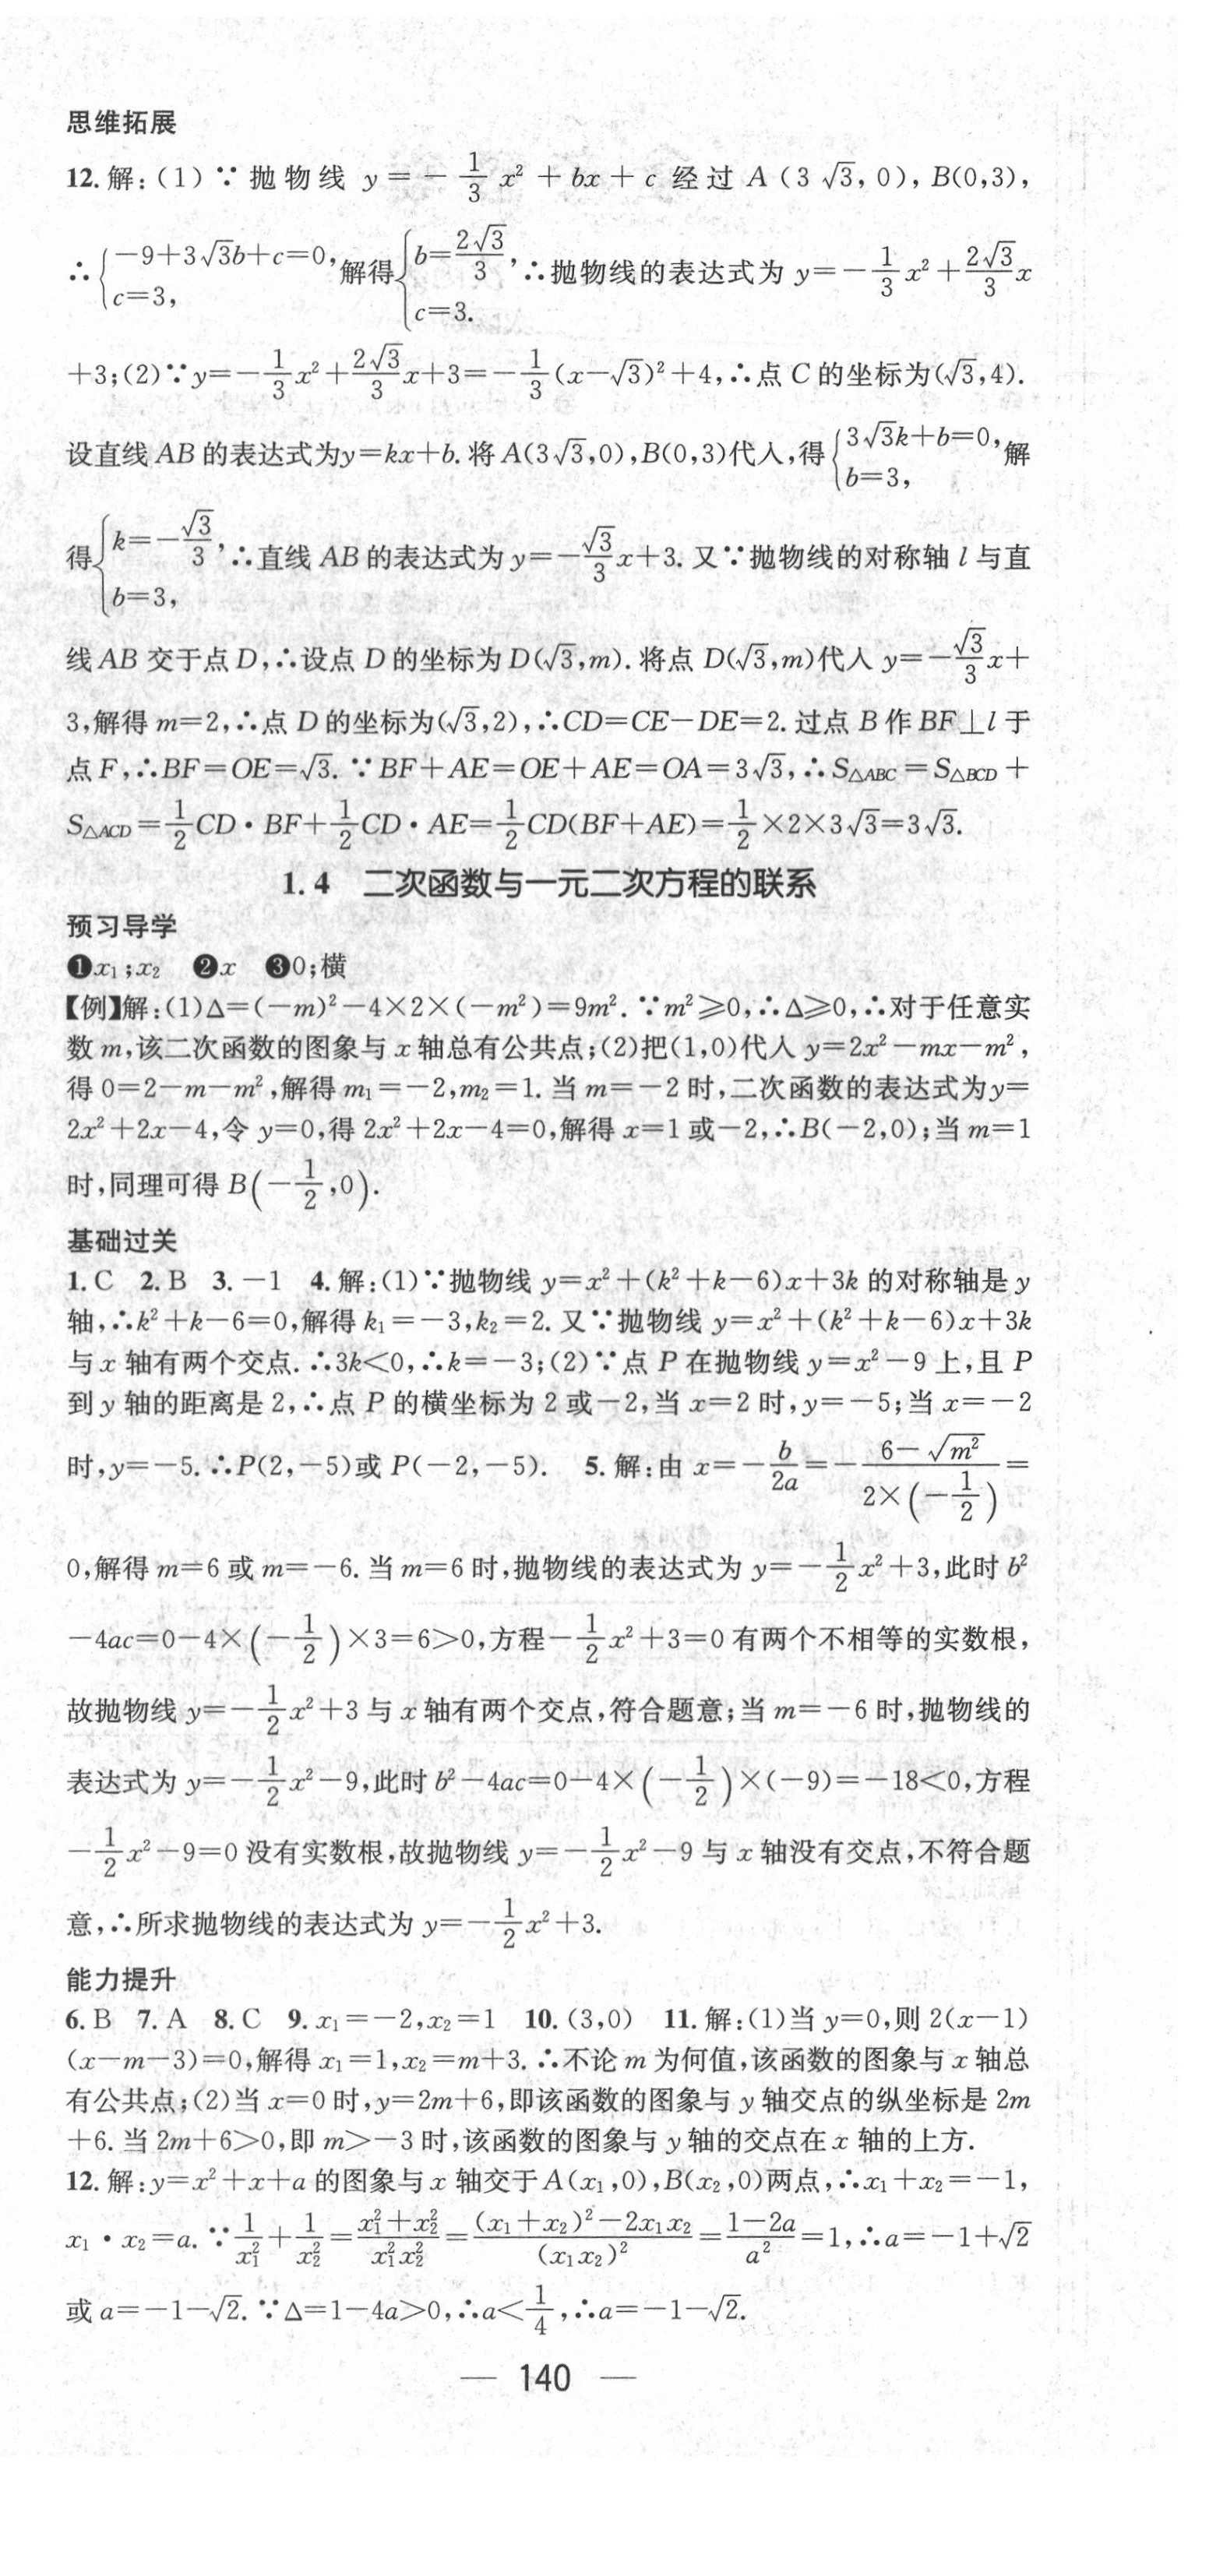 思维拓展
12.解:(1)∵抛物线 y=-1/3x²+bx+c 经过 A(3√3,0),B(0,3),
∴{-9+3√3b+c=0, c=3, 解得{b=2√3/3, c=3. ∴抛物线的表达式为 y=-1/3x²+2√3/3x
+3;(2)∵y=-1/3x²+2√3/3x+3=-1/3(x-√3)²+4,∴点 C 的坐标为(√3,4).
设直线 AB 的表达式为y=kx+b.将 A(3√3,0),B(0,3)代入,得{3√3k+b=0, b=3, 解
得{k=-√3/3, b=3, ∴直线 AB 的表达式为 y=-√3/3x+3.又∵抛物线的对称轴 l 与直
线 AB 交于点 D,∴设点 D 的坐标为 D(√3,m).将点 D(√3,m)代入 y=-√3/3x+
3,解得 m=2,∴点 D 的坐标为(√3,2),∴CD=CE-DE=2.过点 B 作 BF⊥l 于
点 F,∴BF=OE=√3.∵BF+AE=OE+AE=OA=3√3,∴S△ABC=S△BCD+
S△ACD=1/2CD·BF+1/2CD·AE=1/2CD(BF+AE)=1/2×2×3√3=3√3.
1.4 二次函数与一元二次方程的联系
预习导学
❶x₁;x₂ ❷x ❸0;横
【例】解:(1)Δ=(-m)²-4×2×(-m²)=9m².∵m²≥0,∴Δ≥0,∴对于任意实
数 m,该二次函数的图象与 x 轴总有公共点;(2)把(1,0)代入 y=2x²-mx-m²,
得 0=2-m-m²,解得 m₁=-2,m₂=1.当 m=-2 时,二次函数的表达式为y=
2x²+2x-4,令 y=0,得 2x²+2x-4=0,解得 x=1 或-2,∴B(-2,0);当 m=1
时,同理可得 B(-1/2,0).
基础过关
1.C 2.B 3.-1 4.解:(1)∵抛物线 y=x²+(k²+k-6)x+3k 的对称轴是 y
轴,∴k²+k-6=0,解得 k₁=-3,k₂=2.又∵抛物线 y=x²+(k²+k-6)x+3k
与 x 轴有两个交点.∴3k<0,∴k=-3;(2)∵点 P 在抛物线 y=x²-9 上,且 P
到 y 轴的距离是 2,∴点 P 的横坐标为 2 或-2,当 x=2 时,y=-5;当 x=-2
时,y=-5.∴P(2,-5)或 P(-2,-5). 5.解:由 x=-b/2a=-(6-√m²)/(2×(-1/2))=
0,解得 m=6 或 m=-6.当 m=6 时,抛物线的表达式为 y=-1/2x²+3,此时 b²
-4ac=0-4×(-1/2)×3=6>0,方程-1/2x²+3=0 有两个不相等的实数根,
故抛物线 y=-1/2x²+3 与 x 轴有两个交点,符合题意;当 m=-6 时,抛物线的
表达式为 y=-1/2x²-9,此时 b²-4ac=0-4×(-1/2)×(-9)=-18<0,方程
-1/2x²-9=0 没有实数根,故抛物线 y=-1/2x²-9 与 x 轴没有交点,不符合题
意,∴所求抛物线的表达式为 y=-1/2x²+3.
能力提升
6.B 7.A 8.C 9.x₁=-2,x₂=1 10.(3,0) 11.解:(1)当 y=0,则 2(x-1)
(x-m-3)=0,解得 x₁=1,x₂=m+3.∴不论 m 为何值,该函数的图象与 x 轴总
有公共点;(2)当 x=0 时,y=2m+6,即该函数的图象与 y 轴交点的纵坐标是 2m
+6.当 2m+6>0,即 m>-3 时,该函数的图象与 y 轴的交点在 x 轴的上方.
12.解:y=x²+x+a 的图象与 x 轴交于 A(x₁,0),B(x₂,0)两点,∴x₁+x₂=-1,
x₁·x₂=a.∵1/x₁²+1/x₂²=(x₁²+x₂²)/(x₁²x₂²)=((x₁+x₂)²-2x₁x₂)/(x₁x₂)²=(1-2a)/a²=1,∴a=-1+√2
或 a=-1-√2.∵Δ=1-4a>0,∴a<1/4,∴a=-1-√2.
— 140 —